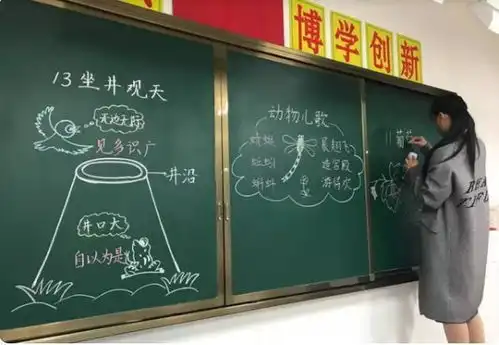 博学创新
13坐井观天
无边无际
见多识广
井沿
井口大
自以为是
动物儿歌
蜻蜓 展翅飞
蚯蚓 造宫殿
蝌蚪 游得欢
11葡